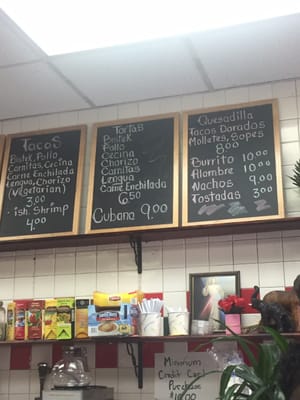 Tacos
Bistek, Pollo
Carnitas, Cecina
Carne Enchilada
Lengua, Chorizo
(Vegetarian)
3.00
ish, Shrimp
4.00
Tortas
Bistek
Pollo
Cecina
Chorizo
Carnitas
Lengua
Carne Enchilada
6.50
Cubana 9.00
Quesadilla
Tacos Dorados
Molletes, Sopes
8.00
Burrito 10.00
Alambre 10.00
Nachos 9.00
Tostadas 3.00
Minimum
Credit Card
Purchase
$10.00